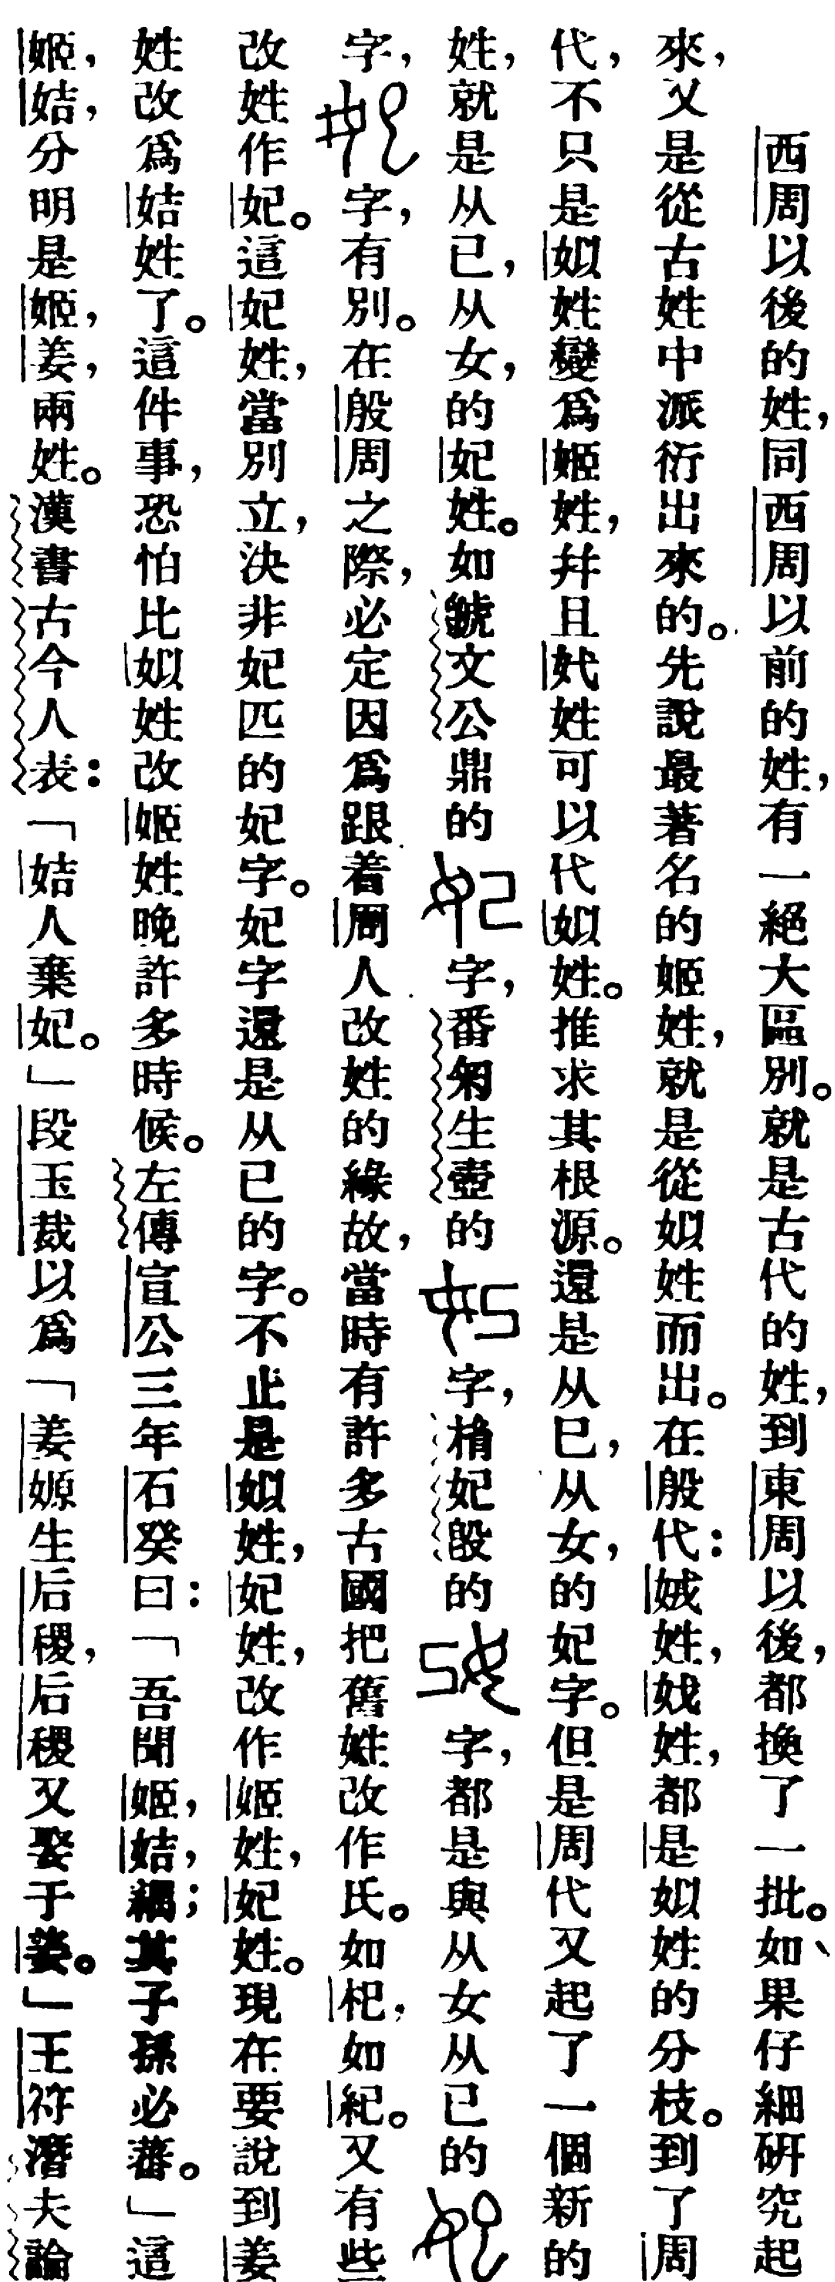 西周以後的姓,同西周以前的姓,有一絕大區別。就是古代的姓,到東周以後,都換了一批。如果仔細研究起
來,又是從古姓中派衍出來的。先說最著名的姬姓,就是從姒姓而出。在殷代:娀姓,㚤姓,都是姒姓的分枝。到了周
代,不只是姒姓變爲姬姓,幷且㚤姓可以代姒姓。推求其根源。還是从巳,从女,的妃字。但是周代又起了一個新的
姓,就是从己,从女,的妃姓。如虢文公鼎的字,番匊生壺的字,楕妃𣪘的字,都是與从女从巳的
字,字,有別。在殷周之際,必定因爲跟着周人改姓的緣故,當時有許多古國把舊姓改作氏。如杞,如紀。又有些
改姓作妃。這妃姓,當別立,決非妃匹的妃字。妃字還是从巳的字。不止是姒姓,妃姓,改作姬姓,妃姓。現在要說到姜
姓改爲姞姓了。這件事,恐怕比姒姓改姬姓晚許多時候。左傳宣公三年石癸曰:「吾聞姬,姞耦;其子孫必蕃。」這
姬,姞,分明是姬,姜,兩姓。漢書古今人表:「姞人棄妃。」段玉裁以爲「姜嫄生后稷,后稷又娶于姜。」王符潛夫論